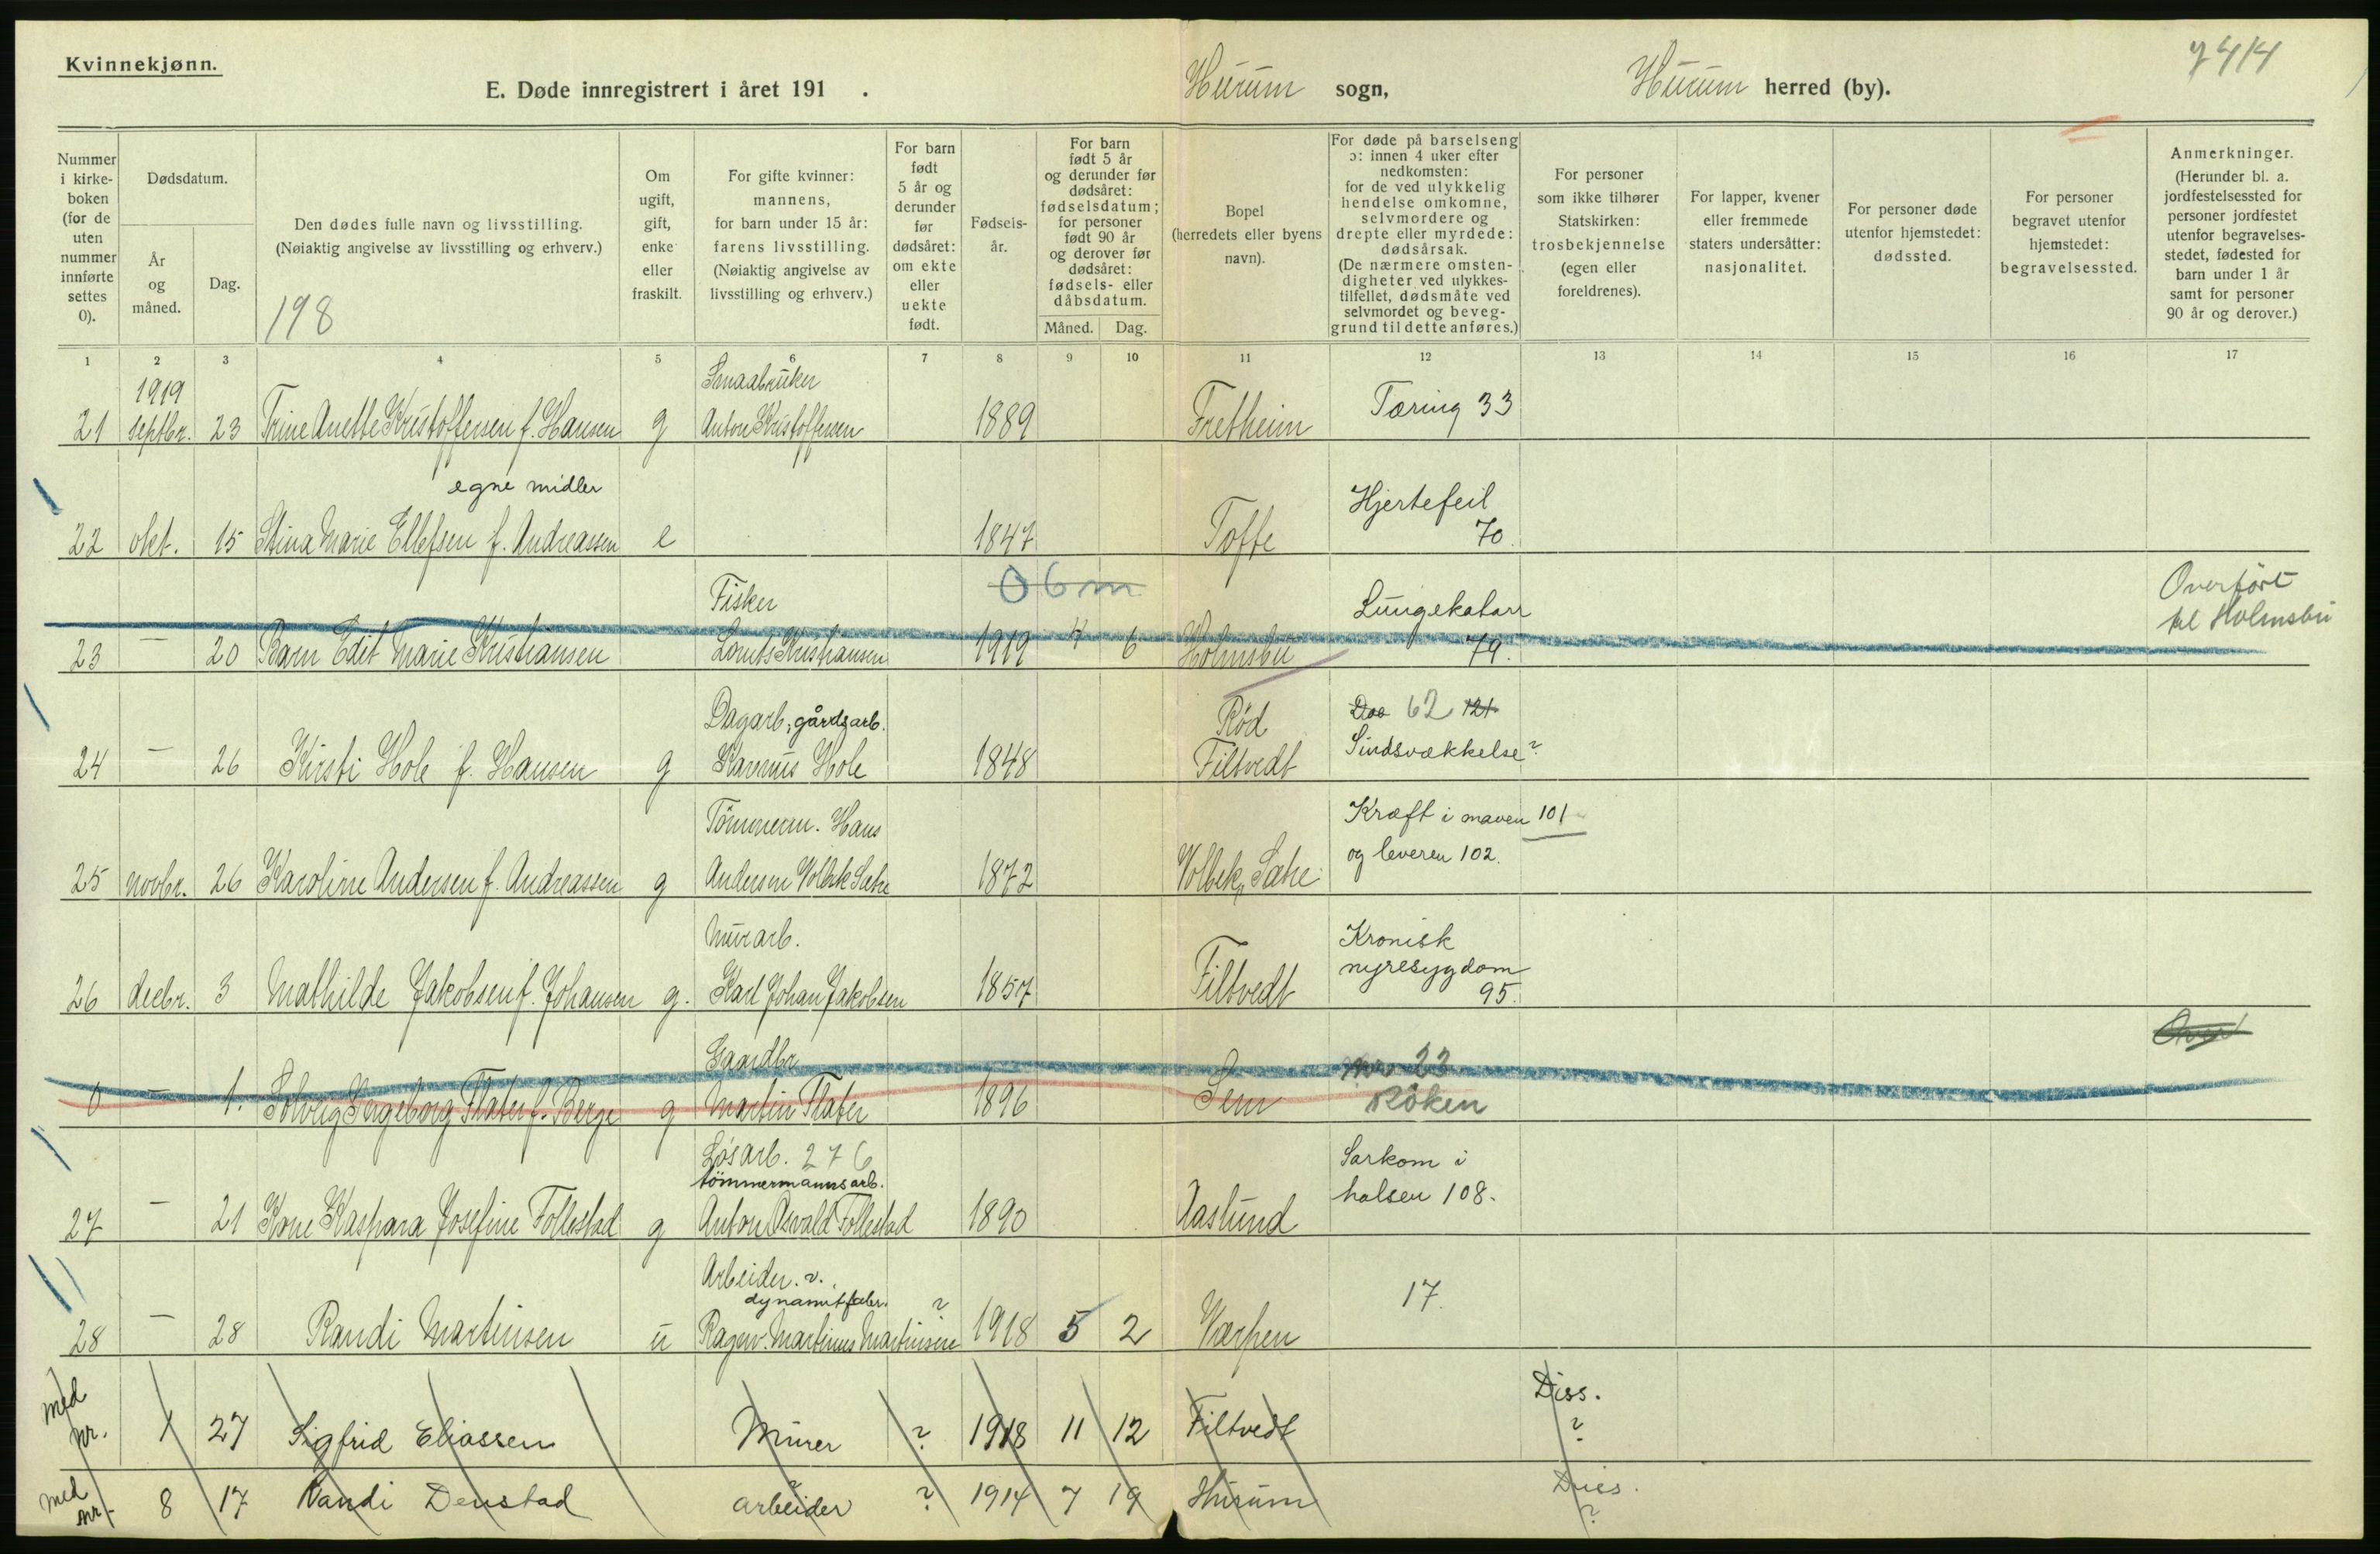 Kvinnekjønn.
7414
E. Døde innregistrert i året 191 . Hurum sogn, Hurum herred (by).
Nummer i kirke-boken (for de uten nummer innførte settes 0).
Dødsdatum.
År og måned.
Dag.
Den dødes fulle navn og livsstilling.
(Nøiaktig angivelse av livsstilling og erhverv.)
198
Om ugift, gift, enke eller fraskilt.
For gifte kvinner: mannens, for barn under 15 år: farens livsstilling. (Nøiaktig angivelse av livsstilling og erhverv.)
For barn født 5 år og derunder før dødsåret: om ekte eller uekte født.
Fødsels-år.
For barn født 5 år og derunder før dødsåret: fødselsdatum; for personer født 90 år og derover før dødsåret: fødsels- eller dåbsdatum.
Måned. Dag.
Bopel (herredets eller byens navn).
For døde på barselseng ɔ: innen 4 uker efter nedkomsten: for de ved ulykkelig hendelse omkomne, selvmordere og drepte eller myrdede: dødsårsak. (De nærmere omsten-digheter ved ulykkes-tilfellet, dødsmåte ved selvmordet og beveg-grund til dette anføres.)
For personer som ikke tilhører Statskirken: trosbekjennelse (egen eller foreldrenes).
For lapper, kvener eller fremmede staters undersåtter: nasjonalitet.
For personer døde utenfor hjemstedet: dødssted.
For personer begravet utenfor hjemstedet: begravelsessted.
Anmerkninger. (Herunder bl. a. jordfestelsessted for personer jordfestet utenfor begravelses-stedet, fødested for barn under 1 år samt for personer 90 år og derover.)
1 2 3 4 5 6 7 8 9 10 11 12 13 14 15 16 17
1919 Smaabruker
21 septbr. 23 Trine Anette Kristoffersen f. Hansen g Anton Kristoffersen 1889 Fretheim Tæring 33
egne midler Hjertefeil
22 okt. 15 Stina Marie Ellefsen f. Andreassen e 1847 Tofte 70.
Fisker 0 6 m Lungekatarr Overført til Holmsbu
23 — 20 Barn Edit Marie Kristiansen Kristiansen 1919 4 6 Holmsbu 79.
Dagarb., gårdsarb. Rød 62 121
24 — 26 Kirsti Hole f. Hansen g Hole 1848 Filtvedt Sindsvækkelse?
Tömmerm. Hans Kræft i maven 101
25 novbr. 26 Karoline Andersen f. Andreassen g Andersen Volbek Sætre 1872 Volbek, Sætre og leveren 102.
Murarb. Kronisk nyresygdom
26 decbr. 3 Mathilde Jakobsen f. Johansen g. Karl Johan Jakobsen 1857 Filtvedt 95.
Gaardbr. nr 23
0 — 1. Solveig Ingeborg Flater f. Berge g Martin Flater 1896 Sem Röken
Løsarb. 276 Sarkom i
tömmermannsarb. halsen 108.
27 — 21 Kaspara Josefine Follestad g Anton Osvald Follestad 1890 Aaslund
Arbeider. v.
dynamitfabr. ? 17.
28 — 28 Randi Martinsen u Ragnv. Martinus Martinsen 1918 5 2 Værpen
med nr. 1 27 Sigfrid Eliassen Murer ? 1918 11 12 Filtvedt Diss. ?
med nr. 8 17 Randi Denstad arbeider ? 1914 7 19 Hurum Diss. ?